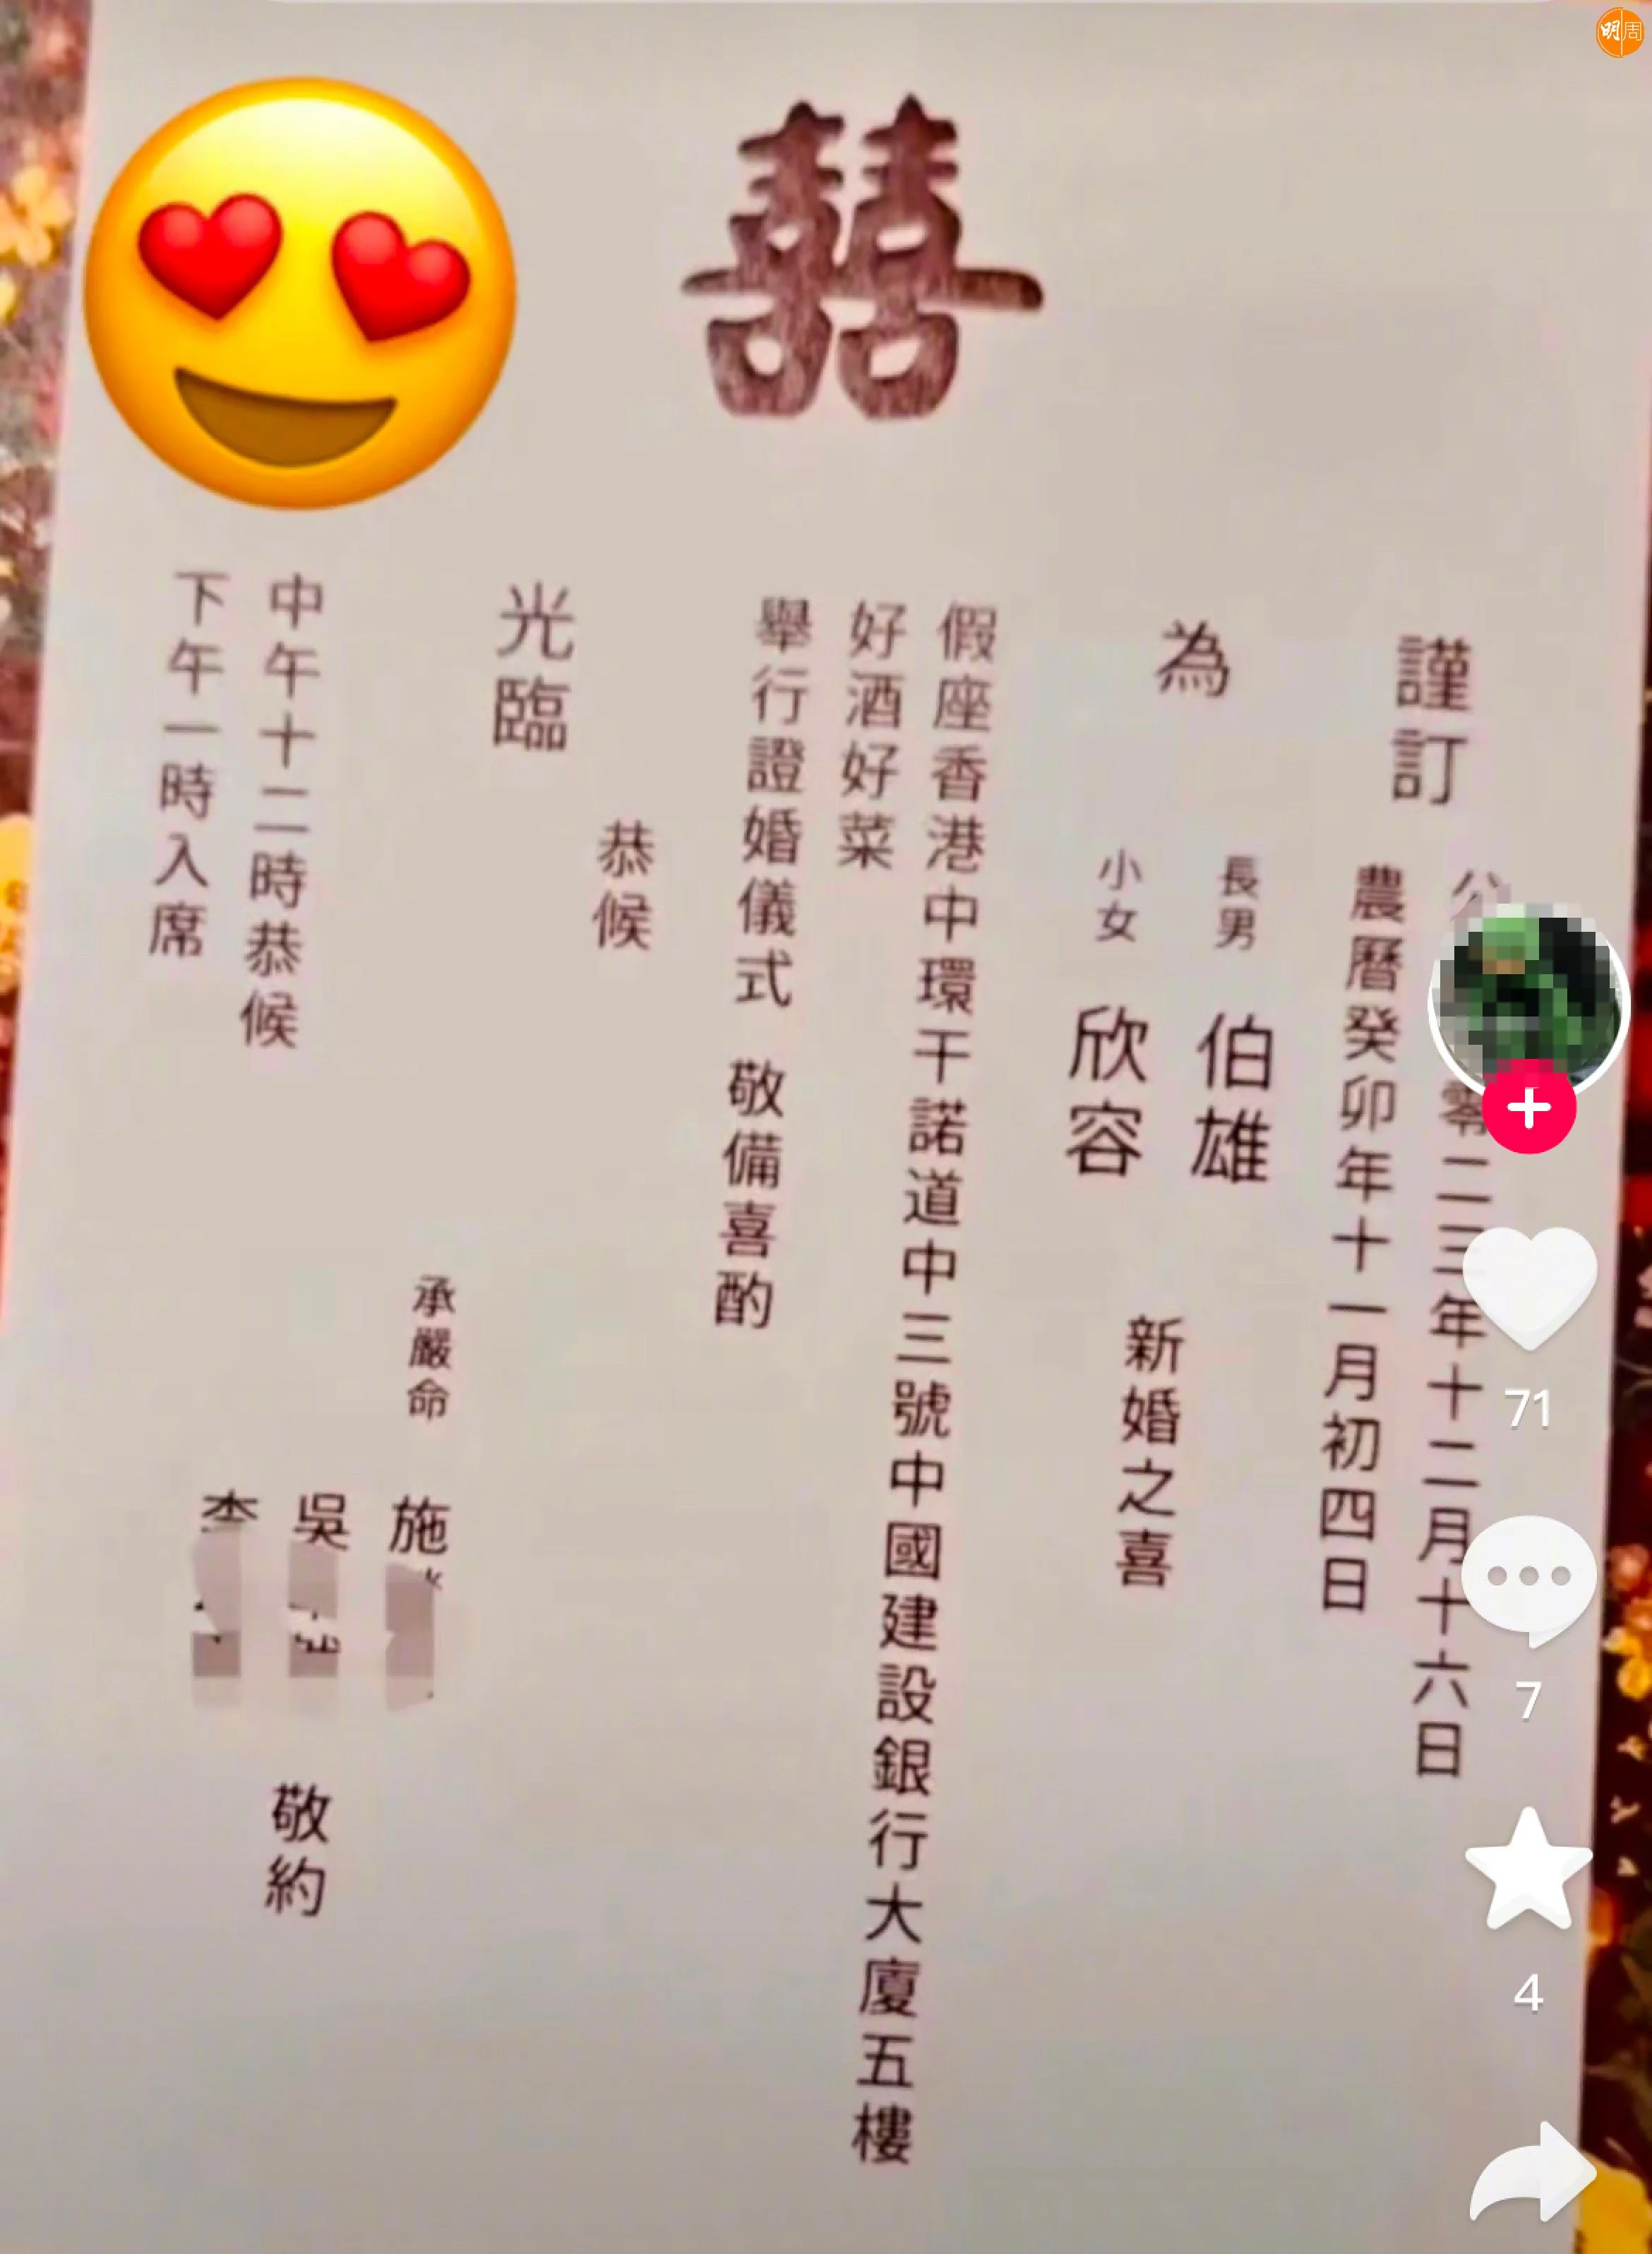 明周
囍
謹訂
零二三年十二月十六日
農曆癸卯年十一月初四日
為
長男 伯雄
小女 欣容
新婚之喜
假座香港中環干諾道中三號中國建設銀行大廈五樓
好酒好菜
舉行證婚儀式 敬備喜酌
恭候
光臨
承嚴命
施
吳
李
敬約
中午十二時恭候
下午一時入席
71
7
4